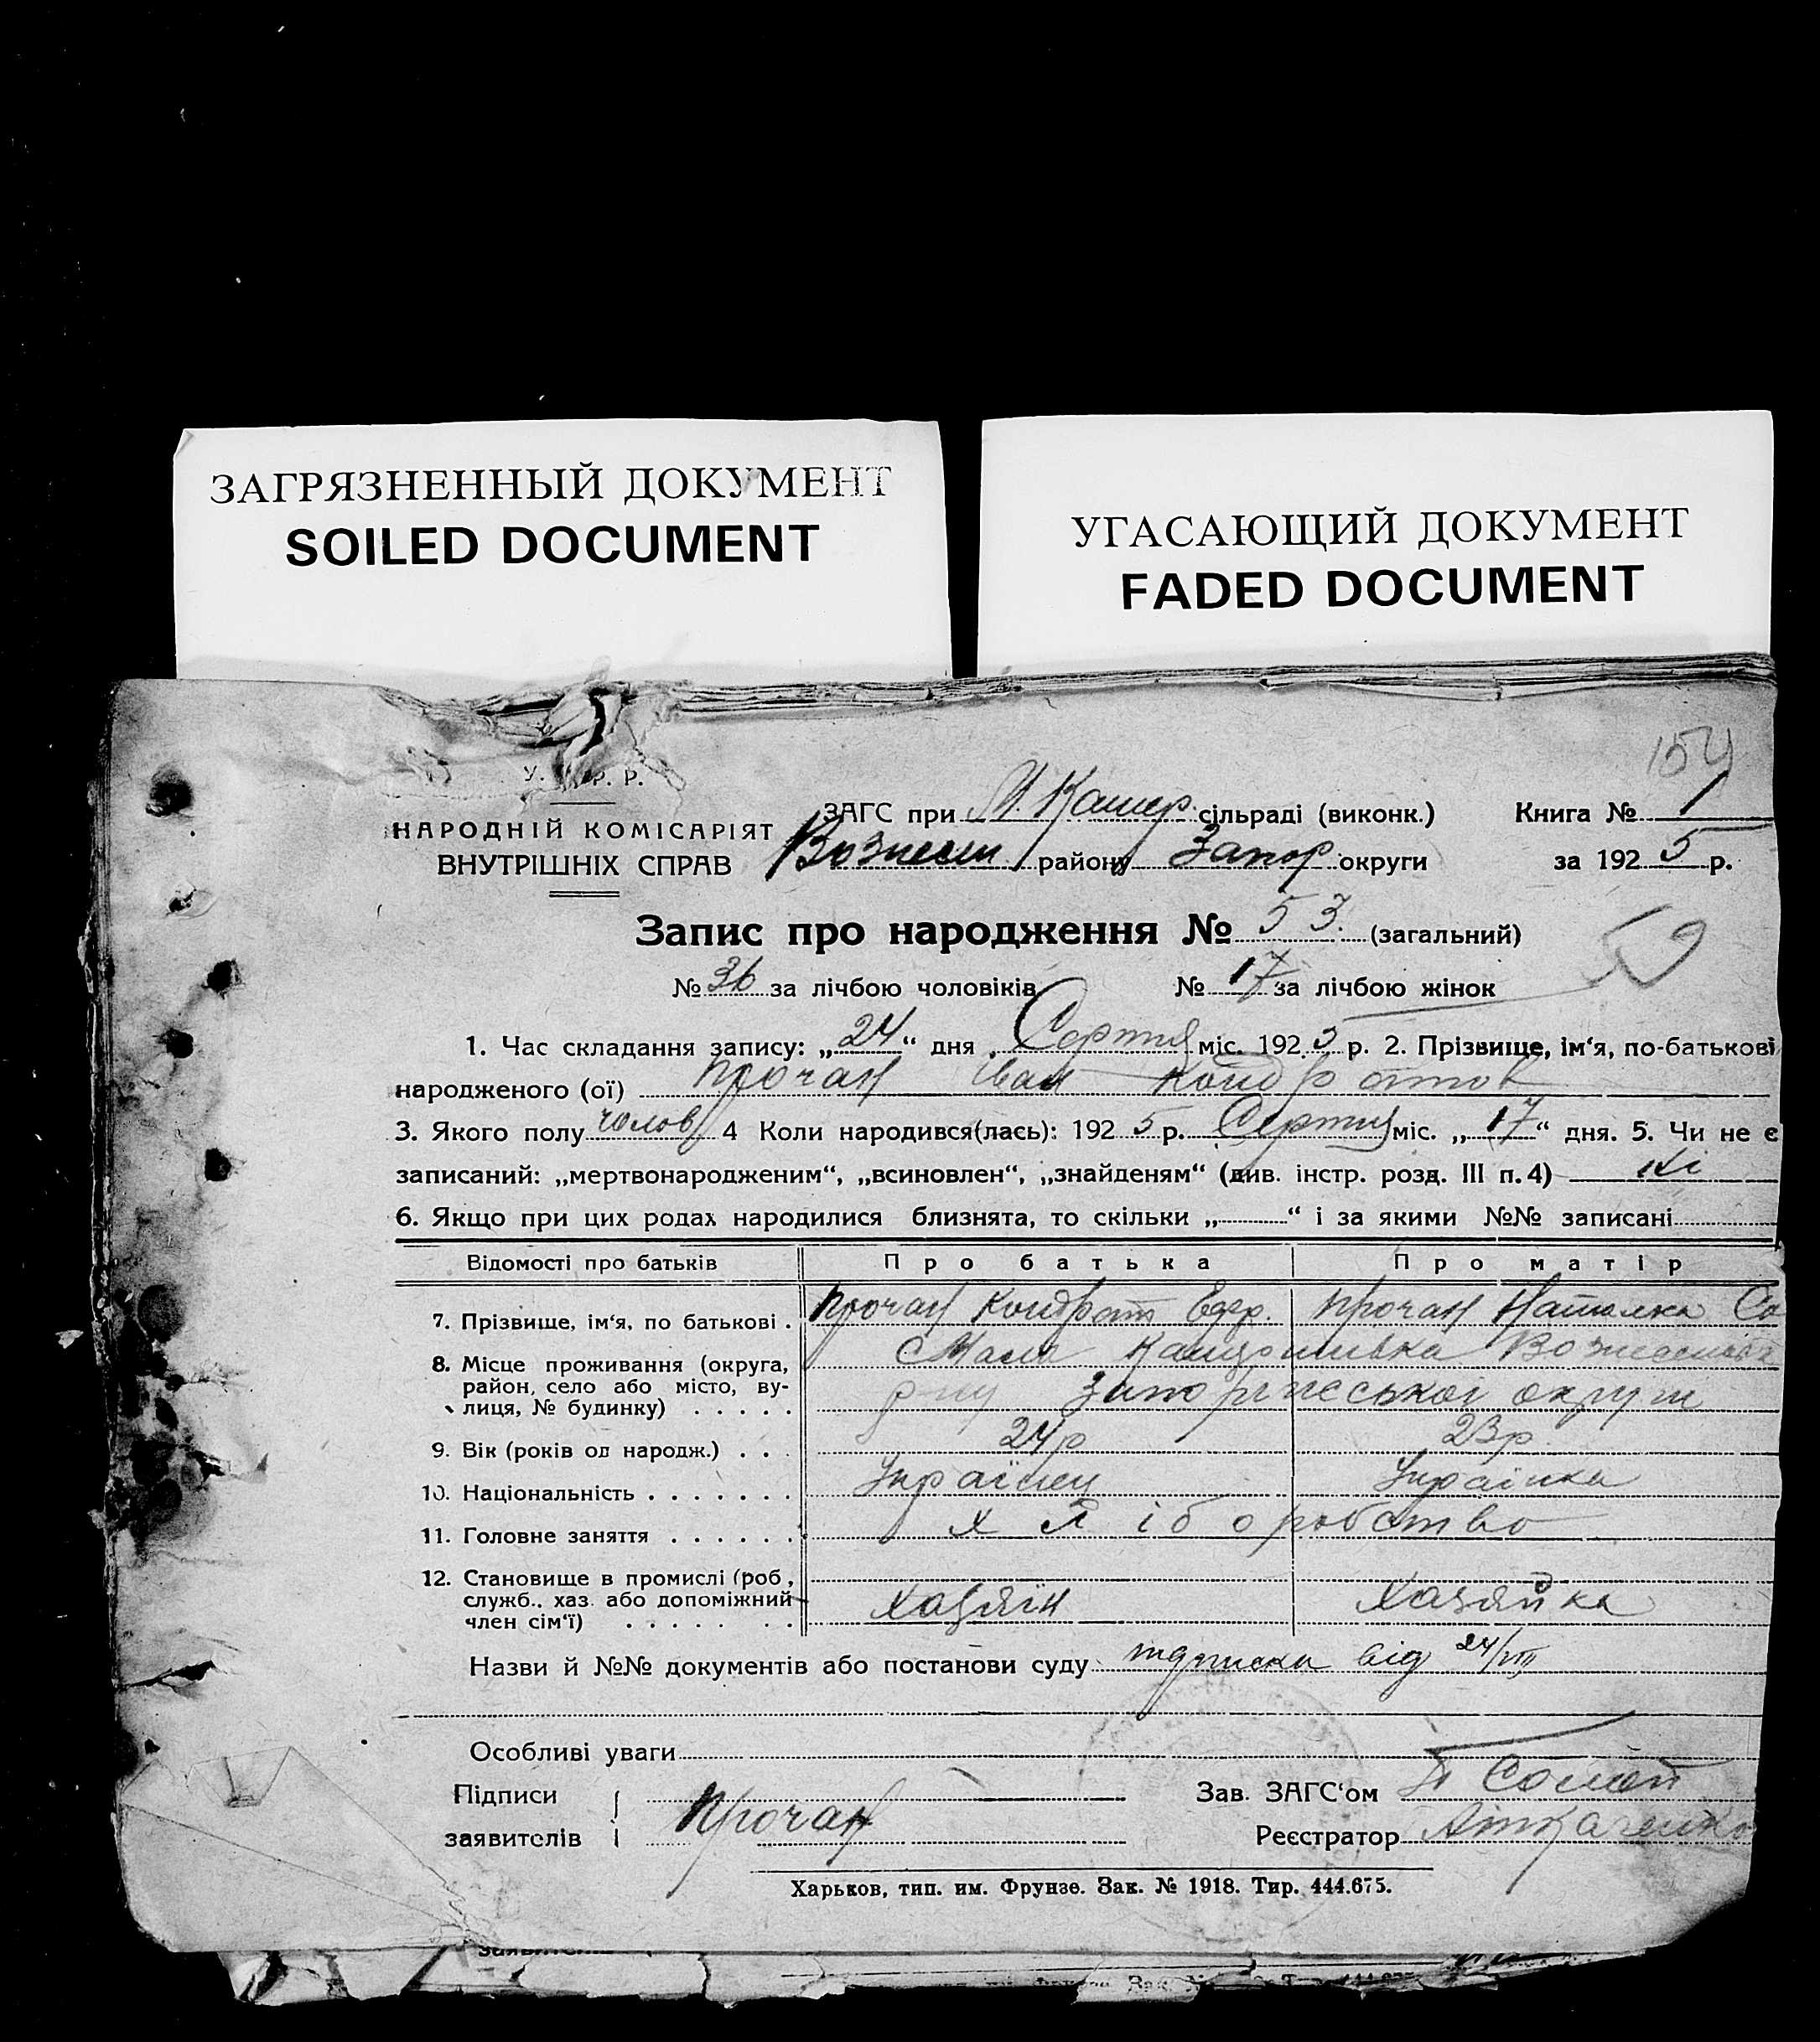 ЗАГРЯЗНЕННЫЙ ДОКУМЕНТ
SOILED DOCUMENT
УГАСАЮЩИЙ ДОКУМЕНТ
FADED DOCUMENT
154
У. Р. Р.
НАРОДНІЙ КОМІСАРІЯТ
ВНУТРІШНІХ СПРАВ
ЗАГС при М. Кашер. сільраді (виконк.) Книга № 1
Вознесен району Запор. округи за 1925 р.
Запис про народження № 53. (загальний)
59
№ 36 за лічбою чоловіків № 17 за лічбою жінок
1. Час складання запису: „24“ дня Серпня міс. 1925 р. 2. Прізвище, ім‘я, по-батькові
народженого (ої) Прочан Іван Кондратов
3. Якого полу чолов 4 Коли народився(лась): 1925 р. Серпня міс. „17“ дня. 5. Чи не є
записаний: „мертвонародженим“, „всиновлен“, „знайденям“ (див. інстр. розд. III п. 4) ні
6. Якщо при цих родах народилися близнята, то скільки „ “ і за якими №№ записані
Відомості про батьків Про батька Про матір
7. Прізвище, ім‘я, по батькові . Прочан Кондрат Прочан Наталка
8. Місце проживання (округа, Мала
район, село або місто, ву- р-ну округи
лиця, № будинку) . . . . .
9. Вік (років од народж.) . . . 24р 23р.
10. Національність . . . . . . . Українец Українка
11. Головне заняття . . . . . . хліборобство
12. Становище в промислі (роб.,
служб., хаз. або допоміжний Хазяїн Хазяйка
член сім‘ї) . . . . . . .
Назви й №№ документів або постанови суду підписка від 24/VIII
Особливі уваги
Підписи Зав. ЗАГС‘ом
заявителів Прочан Реєстратор
Харьков, тип. им. Фрунзе. Зак. № 1918. Тир. 444.675.